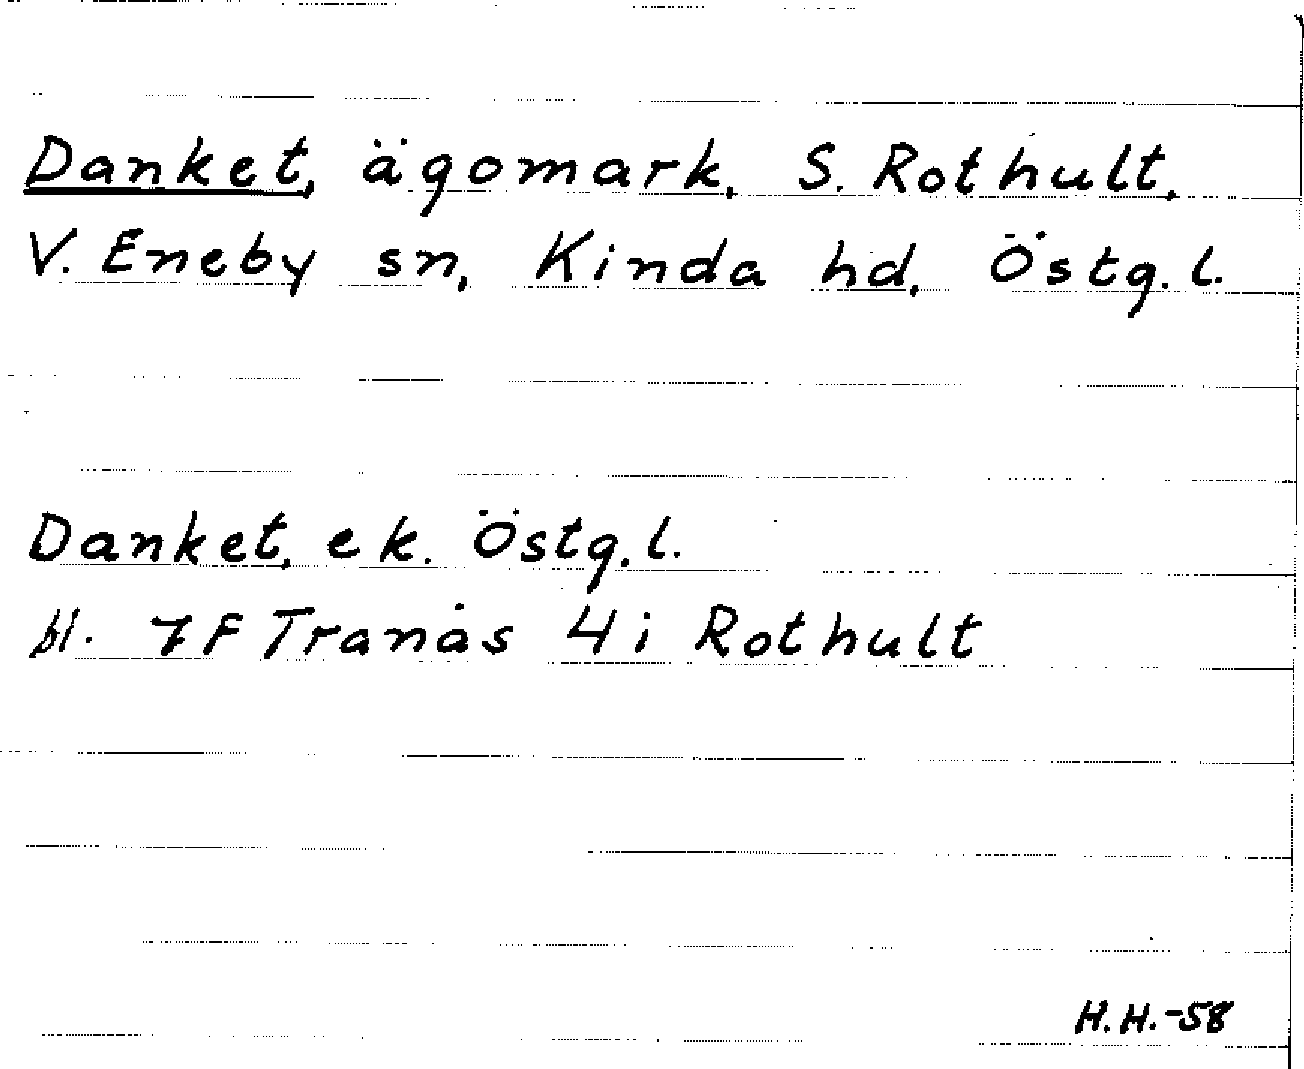 Danket, ägomark, S. Rothult,
V. Eneby sn, Kinda hd, Östg. l.
Danket, ek. Östg. l.
bl. 7F Tranås 4i Rothult
H. H. -58